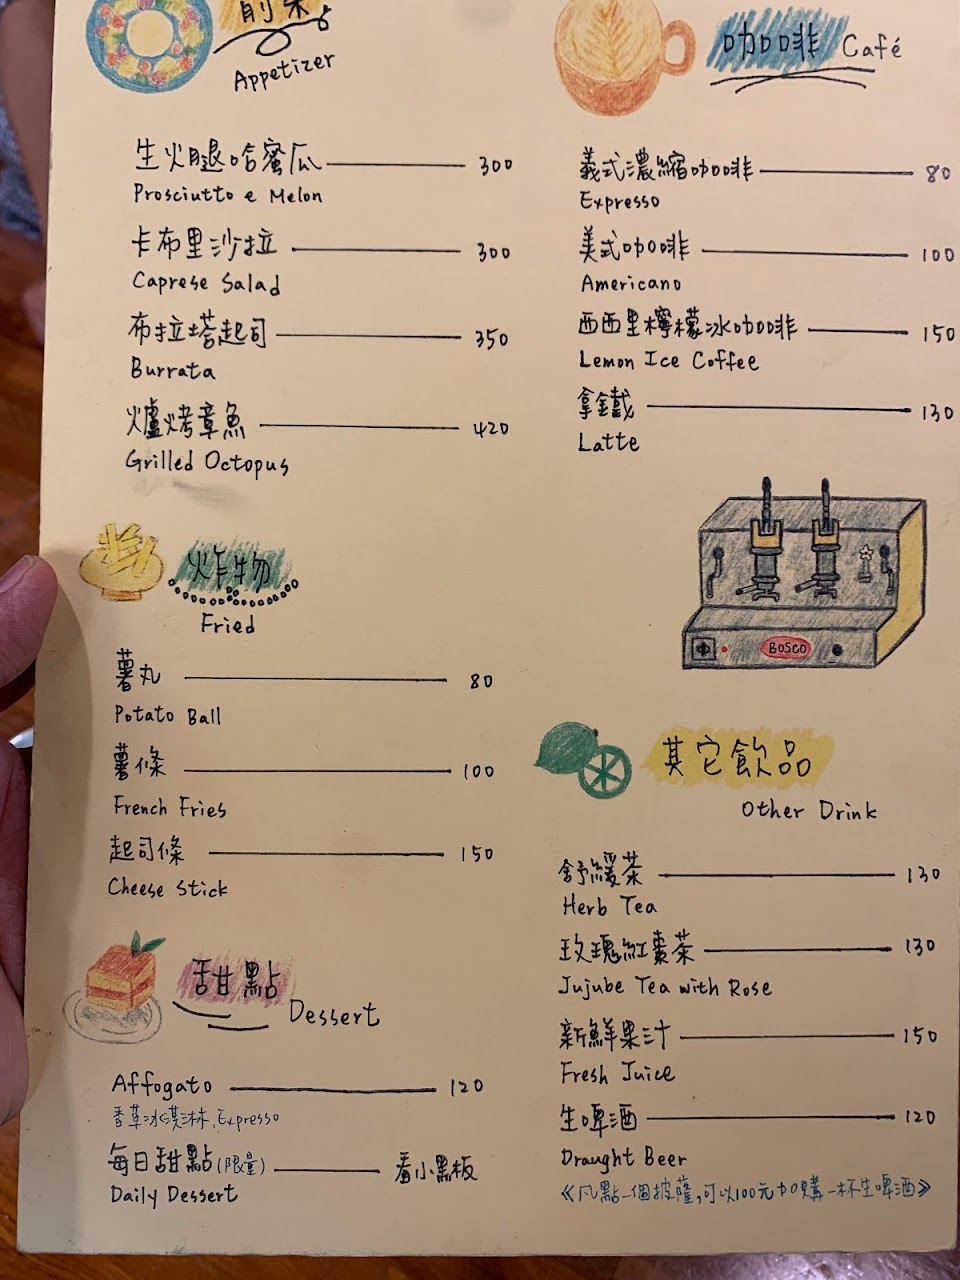 前菜
Appetizer
生火腿哈蜜瓜 300
Prosciutto e Melon
卡布里沙拉 300
Caprese Salad
布拉塔起司 350
Burrata
爐烤章魚 420
Grilled Octopus
炸物
Fried
薯丸 80
Potato Ball
薯條 100
French Fries
起司條 150
Cheese Stick
甜點
Dessert
Affogato 120
香草冰淇淋.Expresso
每日甜點(限量) 看小黑板
Daily Dessert
咖啡 Café
義式濃縮咖啡 80
Expresso
美式咖啡 100
Americano
西西里檸檬冰咖啡 150
Lemon Ice Coffee
拿鐵 130
Latte
BOSCO
其它飲品
Other Drink
舒緩茶 130
Herb Tea
玫瑰紅棗茶 130
Jujube Tea with Rose
新鮮果汁 150
Fresh Juice
生啤酒 120
Draught Beer
《凡點一個披薩,可以100元加購一杯生啤酒》